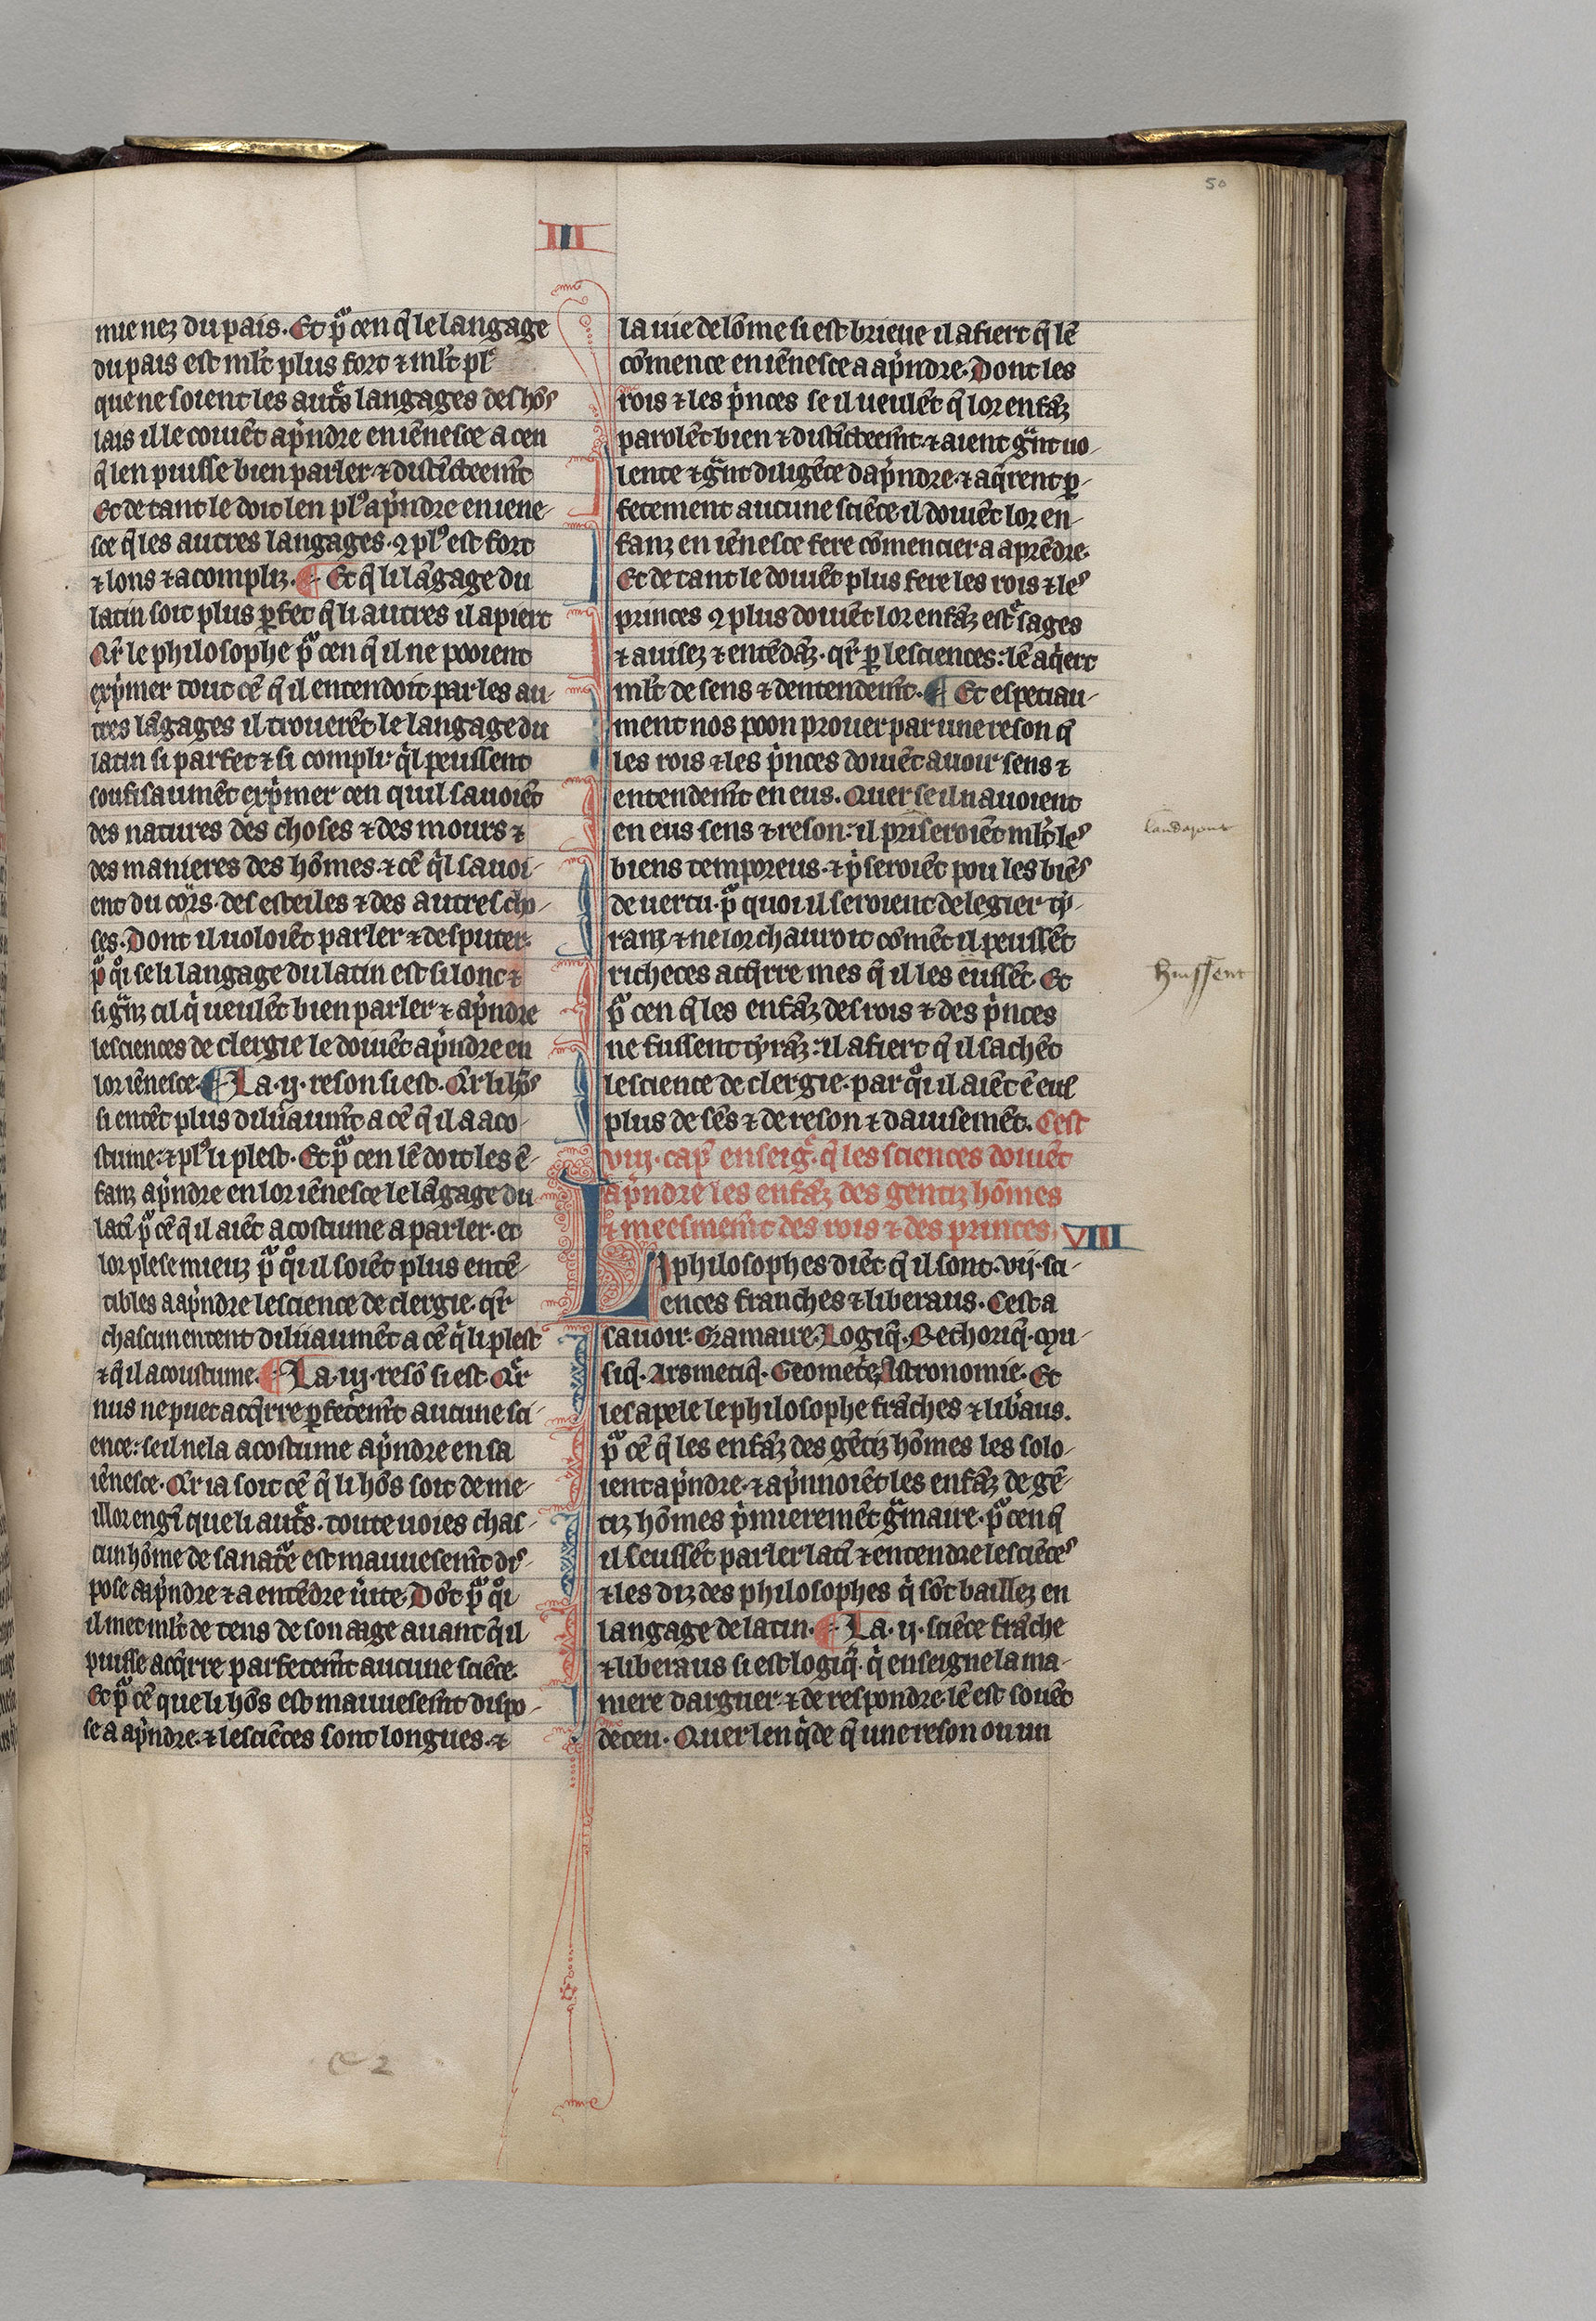 50
III
mie nez du pais. Et pͣ cen q̄ le langage
du pais est ml̄t plus fort ⁊ ml̄t plꝰ
que ne soient les aut̄s langages des hōs
lais il le couiēt ap̄ndre en iēnesce a cen
q̄ len puisse bien parler ⁊ distīcteem̄t
Et de tant le doit len plꝰ ap̄ndre en iene-
sce q̄ les autres langages. ꝯ plꝰ est fort
⁊ lons ⁊ acompliz. ¶ Et q̄ li lāgage du
latin soit plus ꝑfet q̄ li autres il apiert
Qr̄ le philosophe pͣ cen q̄ il ne pooient
exp̄mer tout cē q̄ il entendoit par les au-
tres lāgages il trouerēt le langage du
latin si parfet ⁊ si compli: q̄l peussent
soufisaumēt exp̄mer cen quil sauoiēt
des natures des choses ⁊ des mours ⁊
des manieres des hōmes ⁊ cē q̄l sauoi-
ent du cors. des esteiles ⁊ des autres cho-
ses. Dont il uoloiēt parler ⁊ desputer.
pͣ qͦi se li langage du latin est si lonc ⁊
si gͣnz cil q̄ ueulēt bien parler ⁊ ap̄ndre
lesciences de clergie le doiuēt ap̄ndre en
lor iēnesce. ¶ La .ij. reson si est. Qr̄ li hōs
si entēt plus diliiaum̄t a cē q̄ il a aco-
stume: ⁊ plꝰ li plest. Et pͣ cen lē doit les ē-
fanz ap̄ndre en lor iēnesce le lāgage du
latī pͣ cē q̄ il aiēt acostume a parler. et
lor plese mieuz pͣ qͦi il soiēt plus entē-
tibles a ap̄ndre lescience de clergie. qr̄
chascun entent diliiaumēt a cē q̄ li plest
⁊ q̄ il a coustume. ¶ La .iij. resō si est. Qr̄
nus ne puet acq̄rre ꝑfetem̄t aucune sci-
ence: se il ne la acostume ap̄ndre en sa
iēnesce. Qr ia soit cē q̄ li hōs soit de me-
illor engī que li aut̄s. toute uoies chas-
cun hōme de sa nat̄e est mauuesem̄t dis-
pose a ap̄ndre ⁊ a entēdre u̅ite. Dōt pͣ qͦi
il met ml̄t de tens de son aage auant q̄ il
puisse acq̄rre parfetem̄t aucune sciēce.
Et pͣ cē que li hōs est mauuesem̄t dispo-
se a ap̄ndre. ⁊ lesciēces sont longues. ⁊
la uie de lōme si est brieue il afiert q̄ lē
cōmence en iēnesce a ap̄ndre. Dont les
rois ⁊ les p̄nces se il ueulēt q̄ lor enfāz
parolēt bien ⁊ distīcteem̄t ⁊ aient gͣnt uo-
lente ⁊ gͣnt diligēce dap̄ndre. ⁊ aq̄rent ꝑ-
fetement aucune sciēce il doiuēt lor en-
fanz en iēnesce fere cōmencier a aprēdre.
Et de tant le doiuēt plus fere les rois ⁊ les
princes ꝯ plus doiuēt lor enfāz est̄ sages
⁊ auisez ⁊ entēdāz. qr̄ ꝑ lesciences: lē aq̄ert
ml̄t de sens ⁊ dentendem̄t. ¶ Et especiau-
ment nos poon prouer par une reson q̄
les rois ⁊ les p̄nces doiuēt auoir sens ⁊
entendem̄t en eus. Quer se il nauoient
en eus sens ⁊ reson: il priseroiēt ml̄t les
biens temporeus. ⁊ p̄seroiēt pou les biēs
de uertu. pͣ quoi il seroient de legier ty-
ranz ⁊ ne lor chauroit cōmēt il peussēt
richeces acq̄rre mes q̄ il les eussēt. Et
pͣ cen q̄ les enfāz des rois ⁊ des p̄nces
ne fussent tyrāz: il afiert q̄ il sachēt
lescience de clergie. par qͦi il aiēt ē eus
plus de sēs ⁊ de reson ⁊ dauisemēt. Cest
viij. cap̄ enseiḡ. q̄ les sciences doiuēt
ap̄ndre les enfāz des gentiz hōmes
⁊ meesmem̄t des rois ⁊ des princes. VIII
Li philosophes diēt q̄ il sont .vij. sci-
ences franches ⁊ liberaus. Cest a
sauoir. Gramaire. Logiq̄. Rethoriq̄. Mu-
siq̄. Arsmetiq̄. Geomet̄e. Astronomie. Et
les apele le philosophe frāches ⁊ lib̄aus.
pͣ cē q̄ les enfāz des gētiz hōmes les solo-
ient ap̄ndre. ⁊ ap̄nnoiēt les enfāz de gē-
tiz hōmes p̄mieremēt gͣmaire. pͣ cen q̄
il seussēt parler latī ⁊ entendre lesciēces
⁊ les diz des philosophes q̄ sōt baillez en
langage de latin. ¶ La .ij. sciēce frāche
⁊ liberaus si est logiq̄. q̄ enseigne la ma-
niere darguer ⁊ de respondre. lē est souēt
deceu. Quer len q̄de q̄ une reson ou un
huissent
e 2